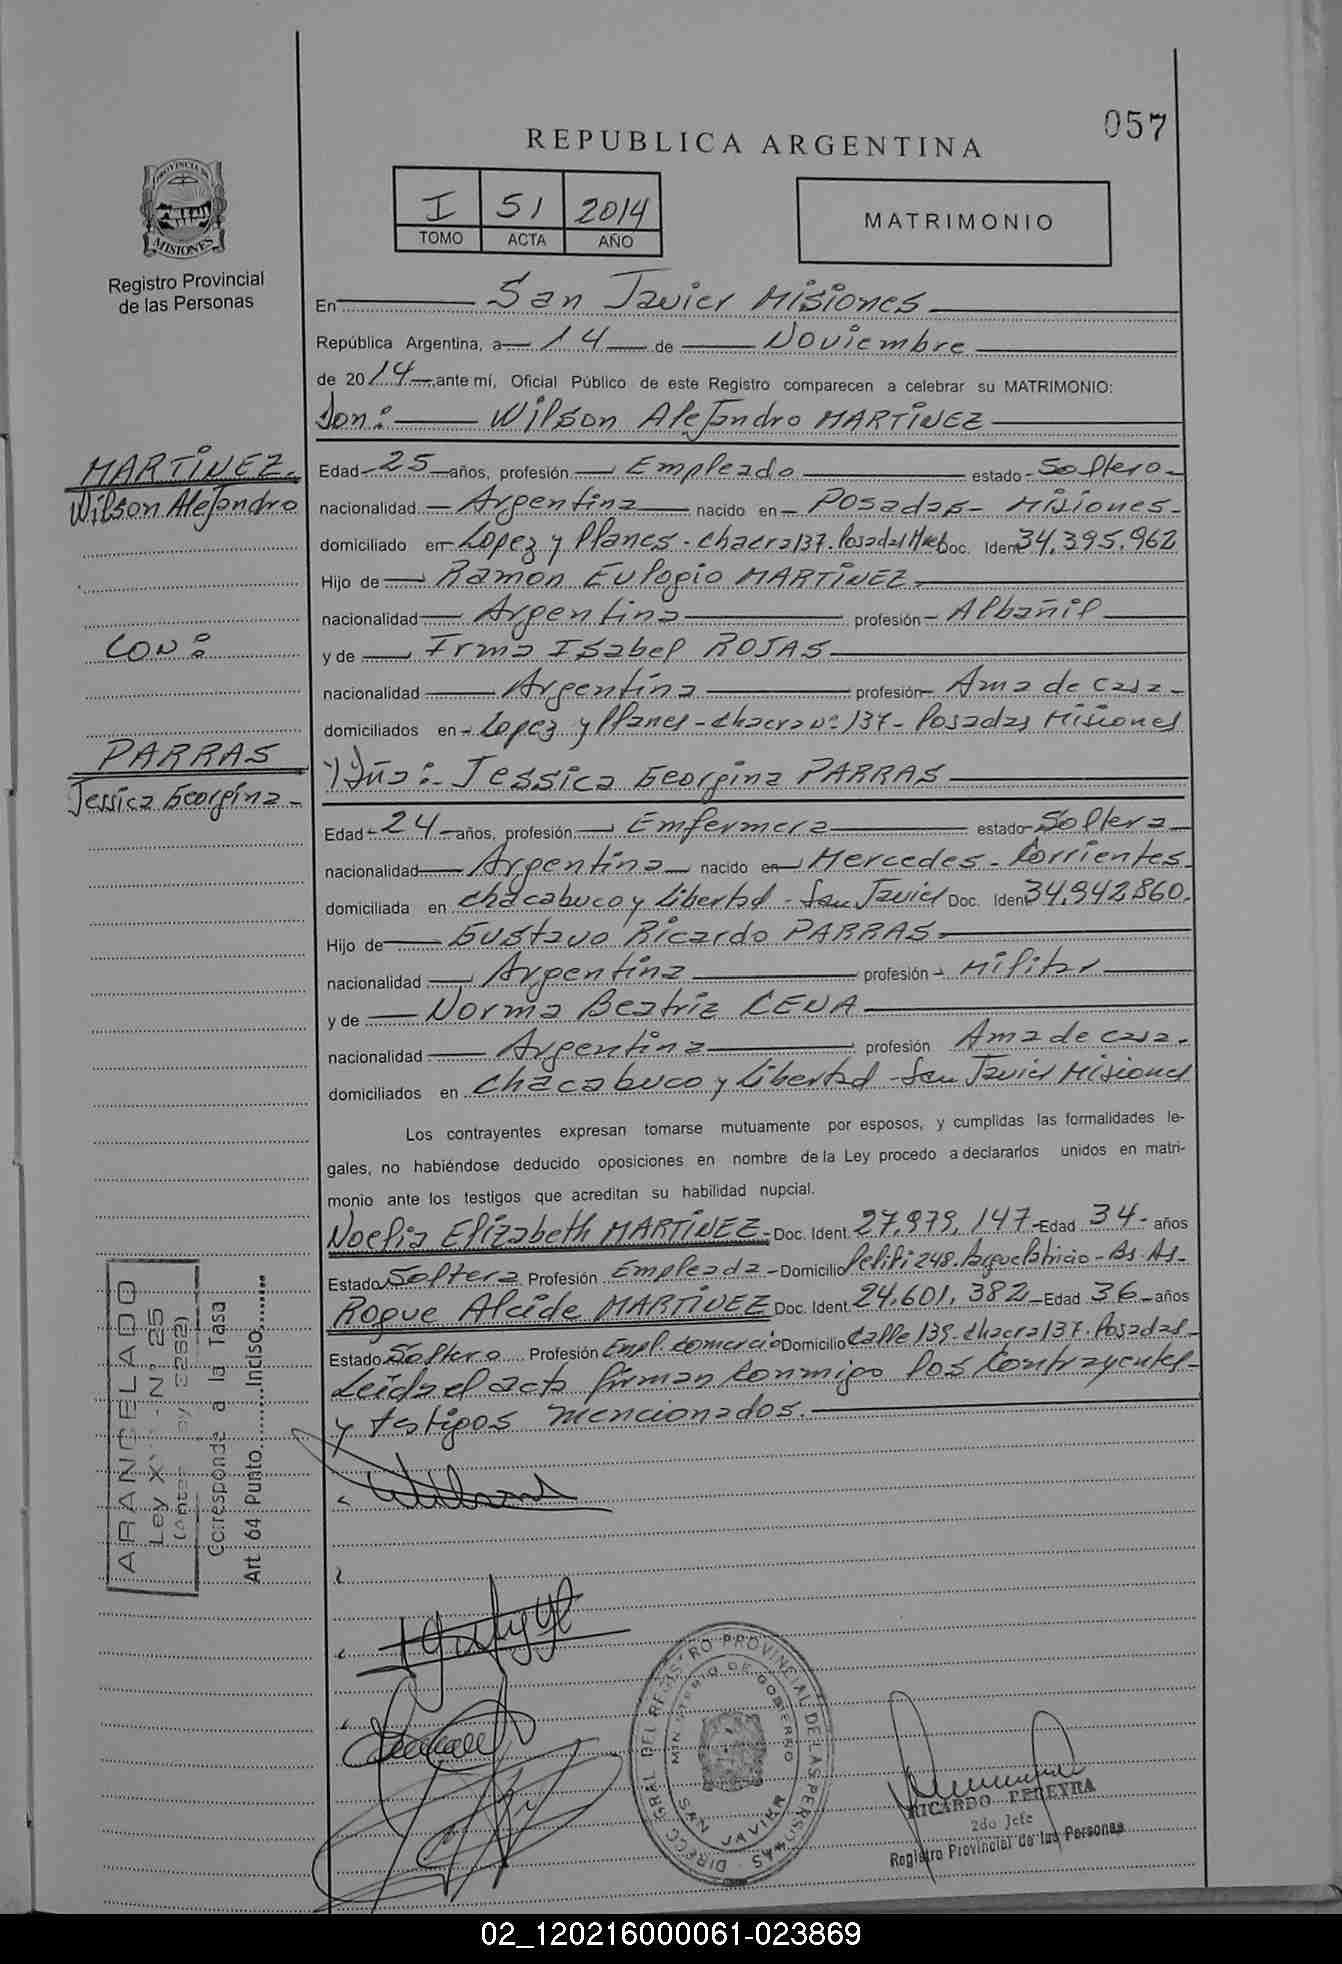 057
REPUBLICA ARGENTINA
I 51 2014
TOMO ACTA AÑO
MATRIMONIO
PROVINCIA DE
MISIONES
Registro Provincial
de las Personas
En San Javier Misiones
República Argentina, a 14 de Noviembre
de 2014, ante mí, Oficial Público de este Registro comparecen a celebrar su MATRIMONIO:
Don: Wilson Alejandro MARTINEZ
MARTINEZ
Wilson Alejandro
Edad 25 años, profesión Empleado estado Soltero
nacionalidad Argentina nacido en Posadas - Misiones
domiciliado en Lopez y Planes - Chacra 137. Posadas Mnes Doc. Ident 34.395.962
Hijo de Ramon Eulogio MARTINEZ
nacionalidad Argentina profesión Albañil
CON:
y de Irma Isabel ROJAS
nacionalidad Argentina profesión Ama de casa
domiciliados en Lopez y Planes - Chacra nº 137 - Posadas Misiones
PARRAS
Jessica Georgina
Y Dña: Jessica Georgina PARRAS
Edad 24 años, profesión Emfermera estado Soltera
nacionalidad Argentina nacido en Mercedes - Corrientes
domiciliada en Chacabuco y Libertad - San Javier Doc. Ident 34.942.860.
Hijo de Gustavo Ricardo PARRAS
nacionalidad Argentina profesión Militar
y de Norma Beatriz CENA
nacionalidad Argentina profesión Ama de casa.
domiciliados en Chacabuco y Libertad - San Javier Misiones
Los contrayentes expresan tomarse mutuamente por esposos, y cumplidas las formalidades le-
gales, no habiéndose deducido oposiciones en nombre de la Ley procedo a declararlos unidos en matri-
monio ante los testigos que acreditan su habilidad nupcial.
Noelia Elizabeth MARTINEZ - Doc. Ident. 27.979.147 Edad 34 - años
Estado Soltera Profesión Empleada - Domicilio 248. Parque Patricio - Bs. As.
Roque Alcide MARTINEZ Doc. Ident. 24.601.382 Edad 36 años
Estado Soltero Profesión Empl. Comercio Domicilio Calle 139 - Chacra 137. Posadas
Leida el acta firman conmigo los contrayentes
y testigos mencionados.
ARANCELADO
Ley Nº 25
Corresponde a la Tasa
Art. 64 Punto Inciso
DIRECC. GRAL. DEL REGISTRO PROVINCIAL DE LAS PERSONAS
MINISTERIO DE GOBIERNO
SAN JAVIER
RICARDO PEREYRA
2do Jefe
Registro Provincial de las Personas
02_120216000061-023869